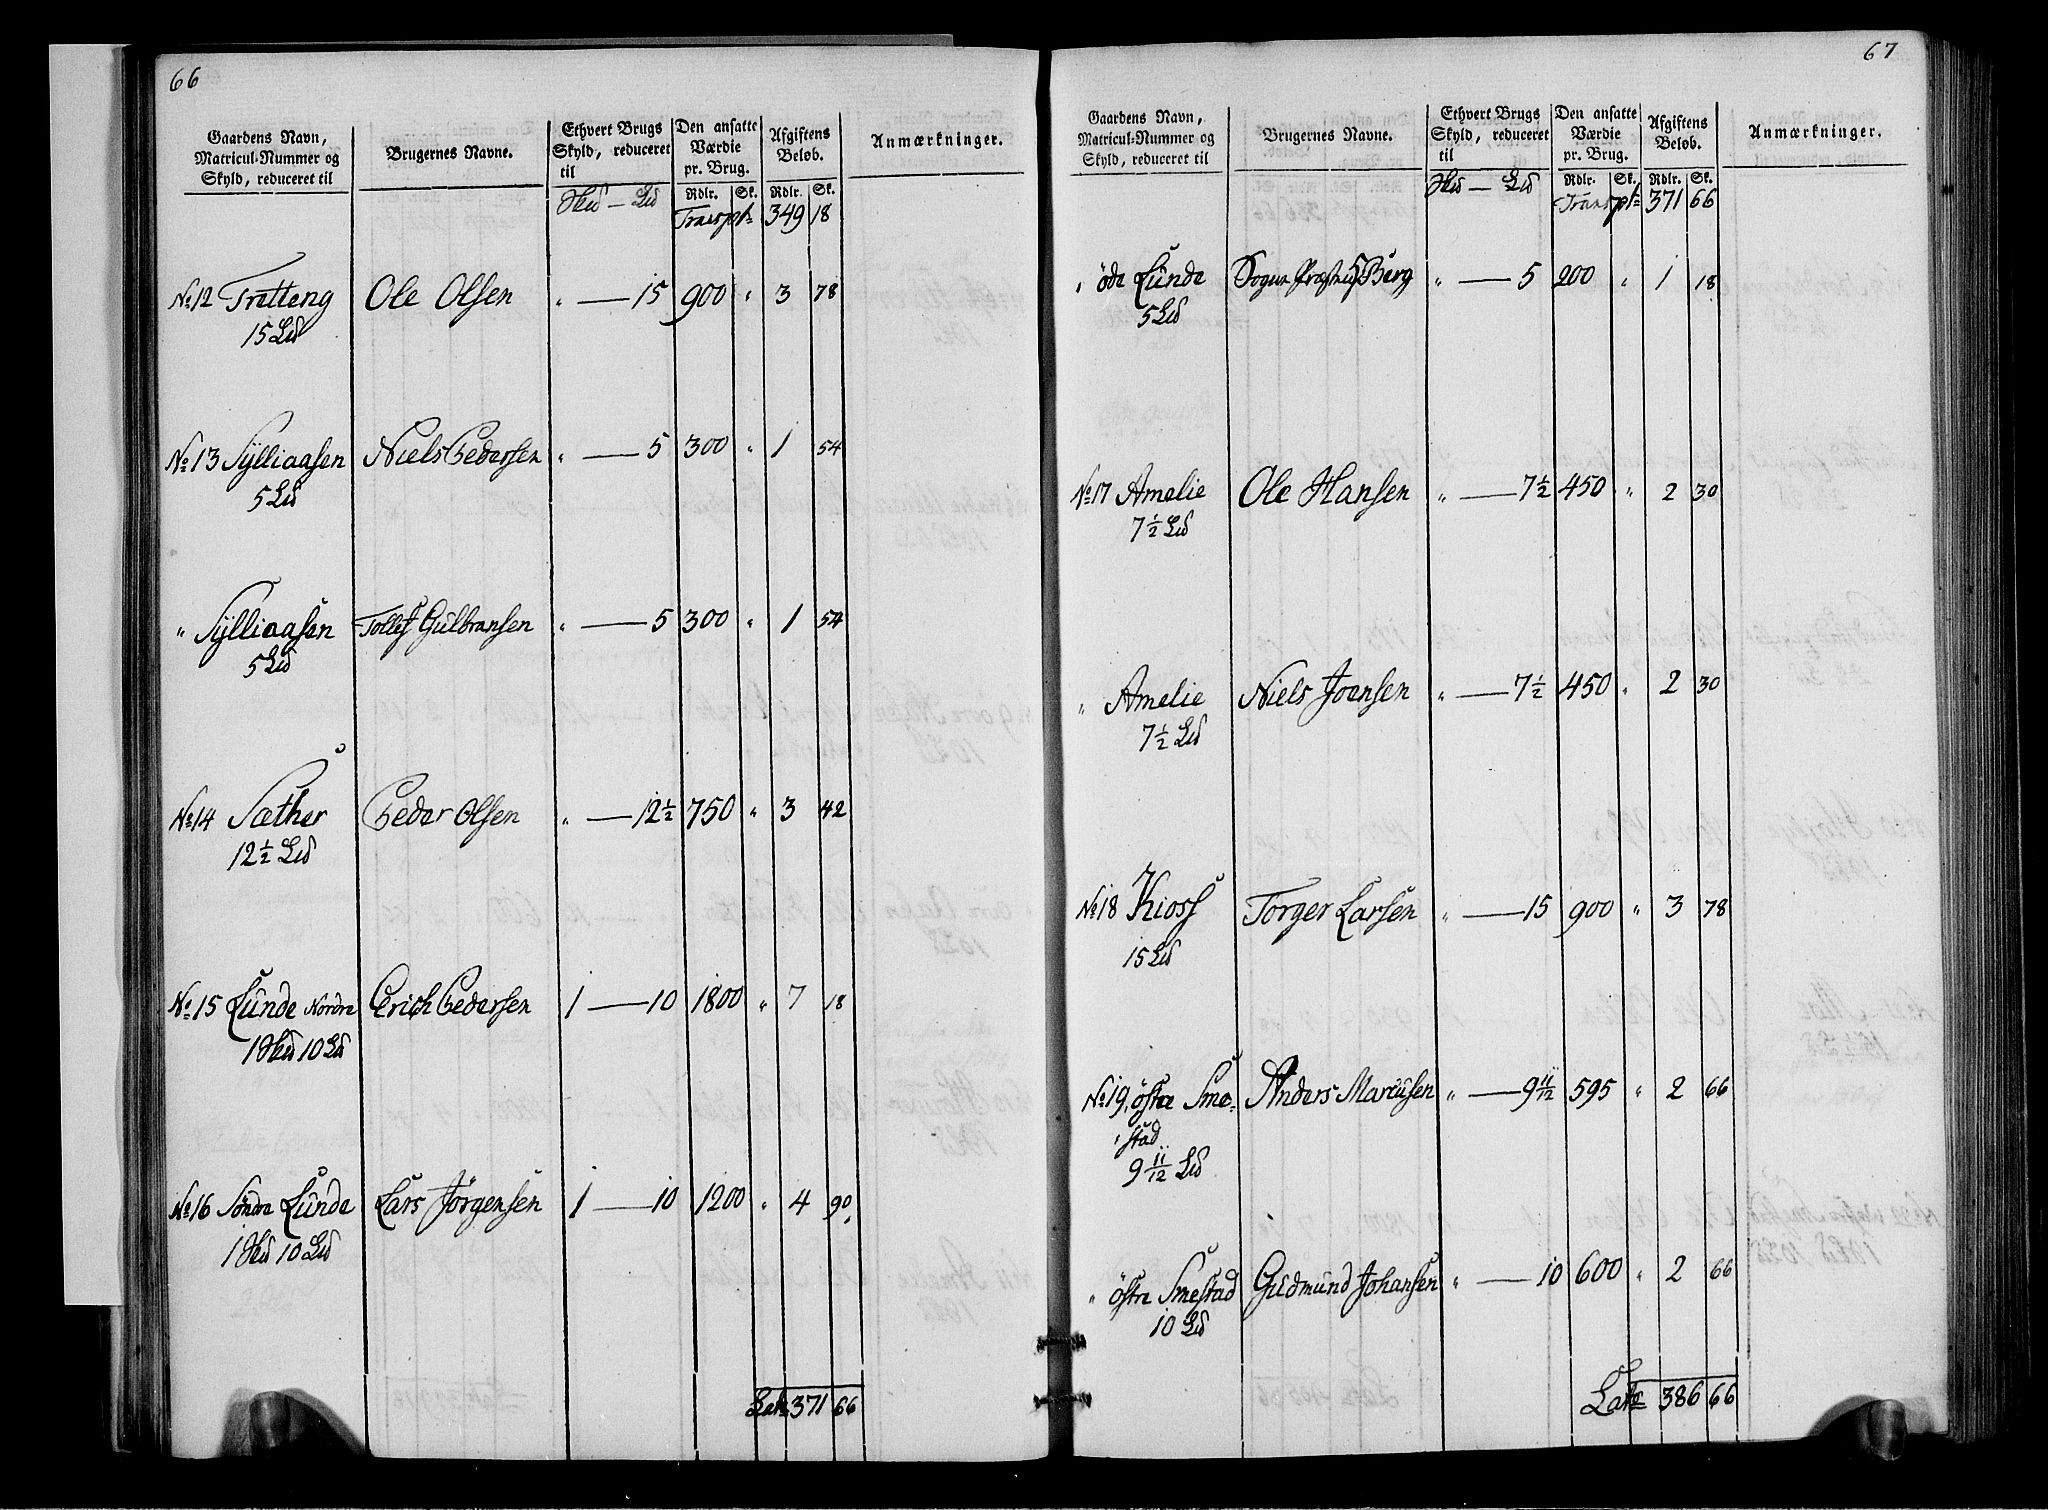 66
Gaardens Navn, Matricul-Nummer og Skyld, reduceret til | Brugernes Navne. | Ethvert Brugs Skyld, reduceret til Hud — Ld | Den ansatte Værdie pr. Brug. Rdlr. Sk. | Afgiftens Beløb. Rdlr. Sk. | Anmærkninger.
Transpt: 349 18
No 12 Tretteng Ole Olsen " — 15 900 " 3 78
15 Ld
No 13 Sÿlliaasen Niels Pedersen " — 5 300 " 1 54
5 Ld
" Sÿlliaasen Tollef Gulbransen " — 5 300 " 1 54
5 Ld
No 14 Sæther Peder Olsen " — 12½ 750 " 3 42
12½ Ld
No 15 Lunde Nordre Erich Pedersen 1 — 10 1800 " 7 18
1 Hud 10 Ld
No 16 Söndre Lunde Lars Jörgensen 1 — 10 1200 " 4 90
1 Hud 10 Ld
Lat: 371 66
67
Gaardens Navn, Matricul-Nummer og Skyld, reduceret til | Brugernes Navne. | Ethvert Brugs Skyld, reduceret til Hud — Ld | Den ansatte Værdie pr. Brug. Rdlr. Sk. | Afgiftens Beløb. Rdlr. Sk. | Anmærkninger.
Transpt: 371 66
" öde Lunde Sogne Præsten Berg " — 5 200 " 1 18
5 Ld
No 17 Amelie Ole Hansen " — 7½ 450 " 2 30
7½ Ld
" Amelie Niels Joensen " — 7½ 450 " 2 30
7½ Ld
No 18 Kioss Torger Larsen " — 15 900 " 3 78
15 Ld
No 19, östre Sme- Anders Marcusen " — 9 11/12 595 " 2 66
stad
9 11/12 Ld
" östre Smestad Gudmund Johansen " — 10 600 " 2 66
10 Ld
Lat: 386 66